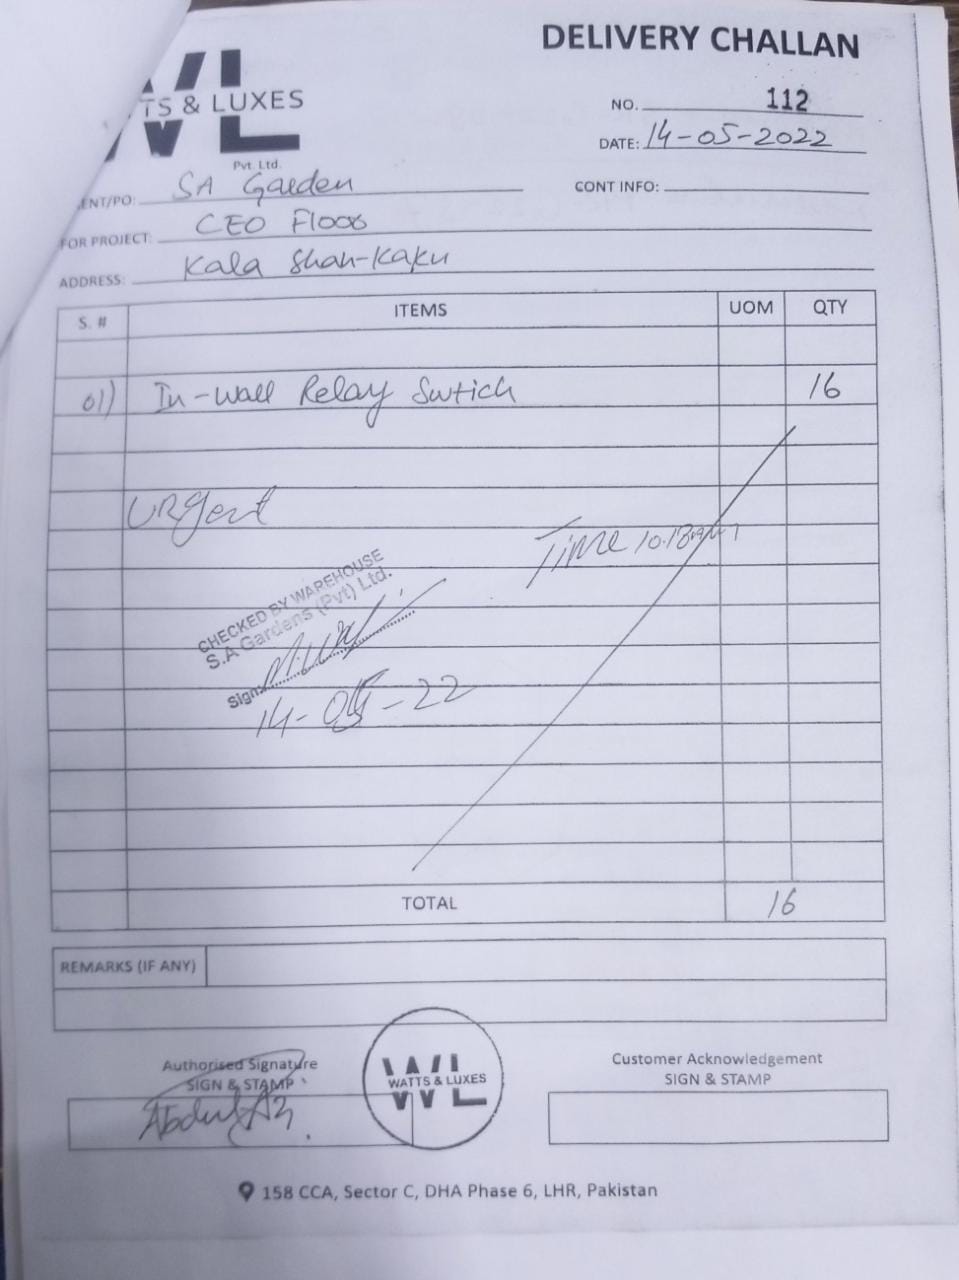 DELIVERY CHALLAN
WL
TS & LUXES
Pvt. Ltd.
NO. 112
DATE: 14-05-2022
ENT/PO: SA Gaeden
CONT INFO:
FOR PROJECT: CEO Floor
ADDRESS: Kala Shah-Kaku
S. # ITEMS UOM QTY
01) In-Wall Relay Swtich 16
URgent
Time
CHECKED BY WAREHOUSE
S.A Gardens (Pvt) Ltd.
Sign:
14-05-22
TOTAL 16
REMARKS (IF ANY)
Authorised Signature
SIGN & STAMP
WL
WATTS & LUXES
Customer Acknowledgement
SIGN & STAMP
158 CCA, Sector C, DHA Phase 6, LHR, Pakistan